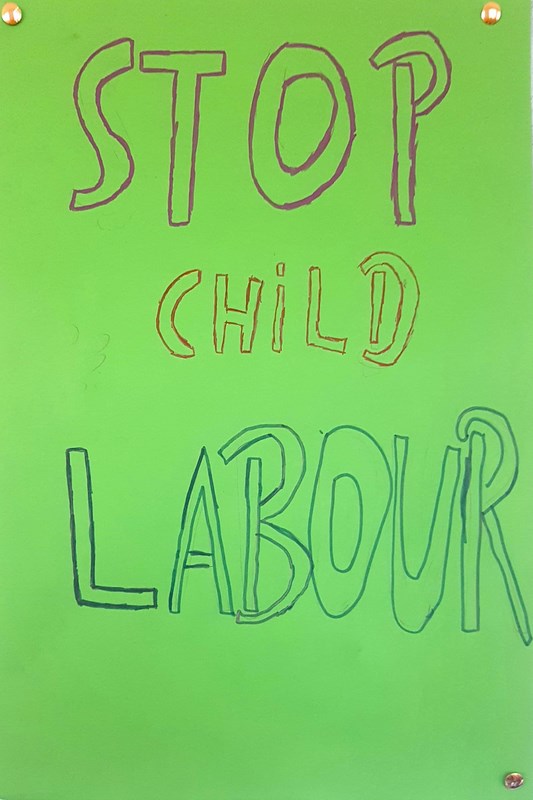 STOP
CHiLD
LABOUR